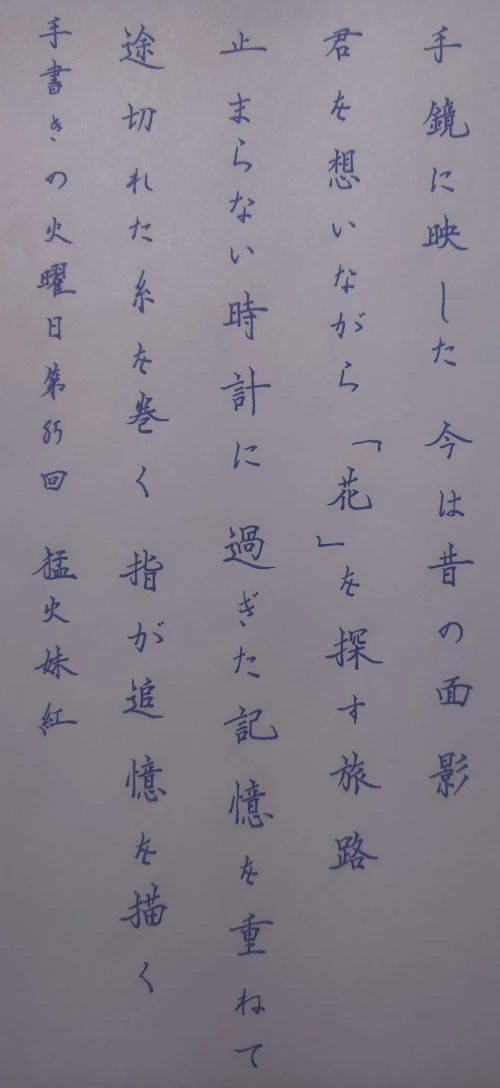 手鏡に映した 今は昔の面影
君を想いながら 「花」を探す旅路
止まらない時計に 過ぎた記憶を重ねて
途切れた糸を巻く 指が追憶を描く
手書きの火曜日第85回 猛火妹紅